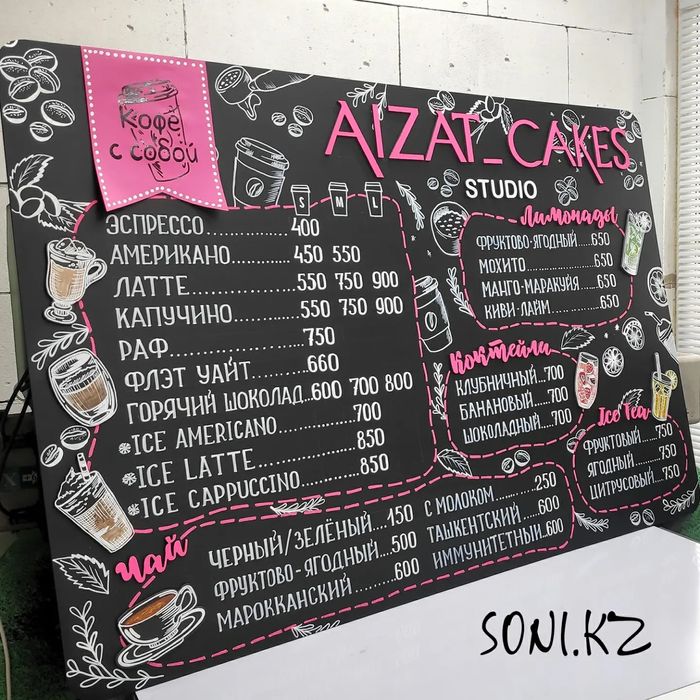 Кофе
с собой
AIZAT_CAKES
STUDIO
S M L
ЭСПРЕССО...............400
АМЕРИКАНО...........450 550
ЛАТТЕ..................550 750 900
КАПУЧИНО............550 750 900
РАФ.......................750
ФЛЭТ УАЙТ..............660
ГОРЯЧИЙ ШОКОЛАД...600 700 800
*ICE AMERICANO............700
*ICE LATTE.................850
*ICE CAPPUCCINO..........850
Лимонады
ФРУКТОВО-ЯГОДНЫЙ.....650
МОХИТО................650
МАНГО-МАРАКУЙЯ....650
КИВИ-ЛАЙМ............650
Коктейла
КЛУБНИЧНЫЙ...700
БАНАНОВЫЙ.....700
ШОКОЛАДНЫЙ...700
Ice Tea
ФРУКТОВЫЙ....750
ЯГОДНЫЙ........750
ЦИТРУСОВЫЙ...750
Чай
ЧЕРНЫЙ/ЗЕЛЁНЫЙ...150
ФРУКТОВО-ЯГОДНЫЙ....500
МАРОККАНСКИЙ..........600
С МОЛОКОМ.........250
ТАШКЕНТСКИЙ.....600
ИММУНИТЕТНЫЙ..600
SONI.KZ